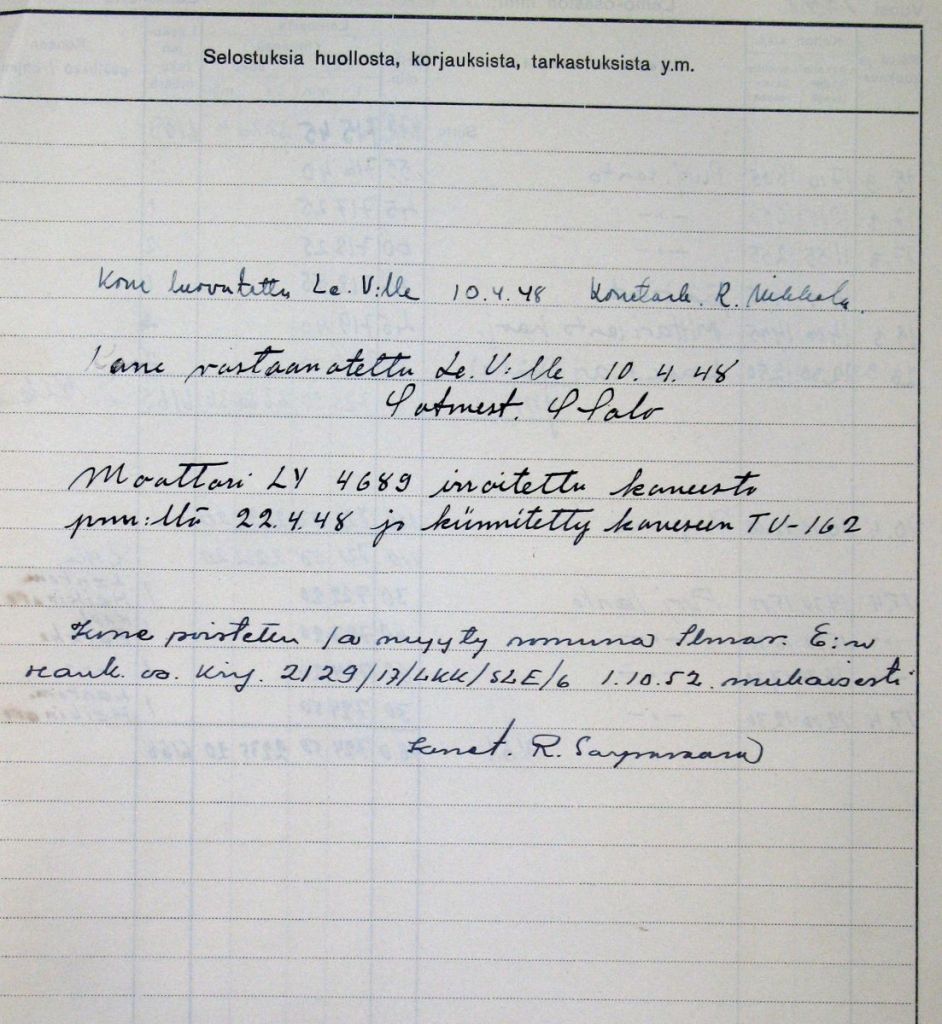 Selostuksia huollosta, korjauksista, tarkastuksista y.m.
Kone luovutettu Le. V:lle 10.4.48 Konetark. R. Mikkola.
Kone vastaanotettu Le. V:lle 10.4.48
Sotmest. Salo
Moottori LY 4689 irroitettu koneesta
pnn:ltä 22.4.48 ja kiinnitetty koneseen TU-162
Kone poistettu ja myyty romuna Ilmav. E:n
hank. os. Kirj. 2129/17/LKK/SLE/6 1.10.52. mukaisesti
R.